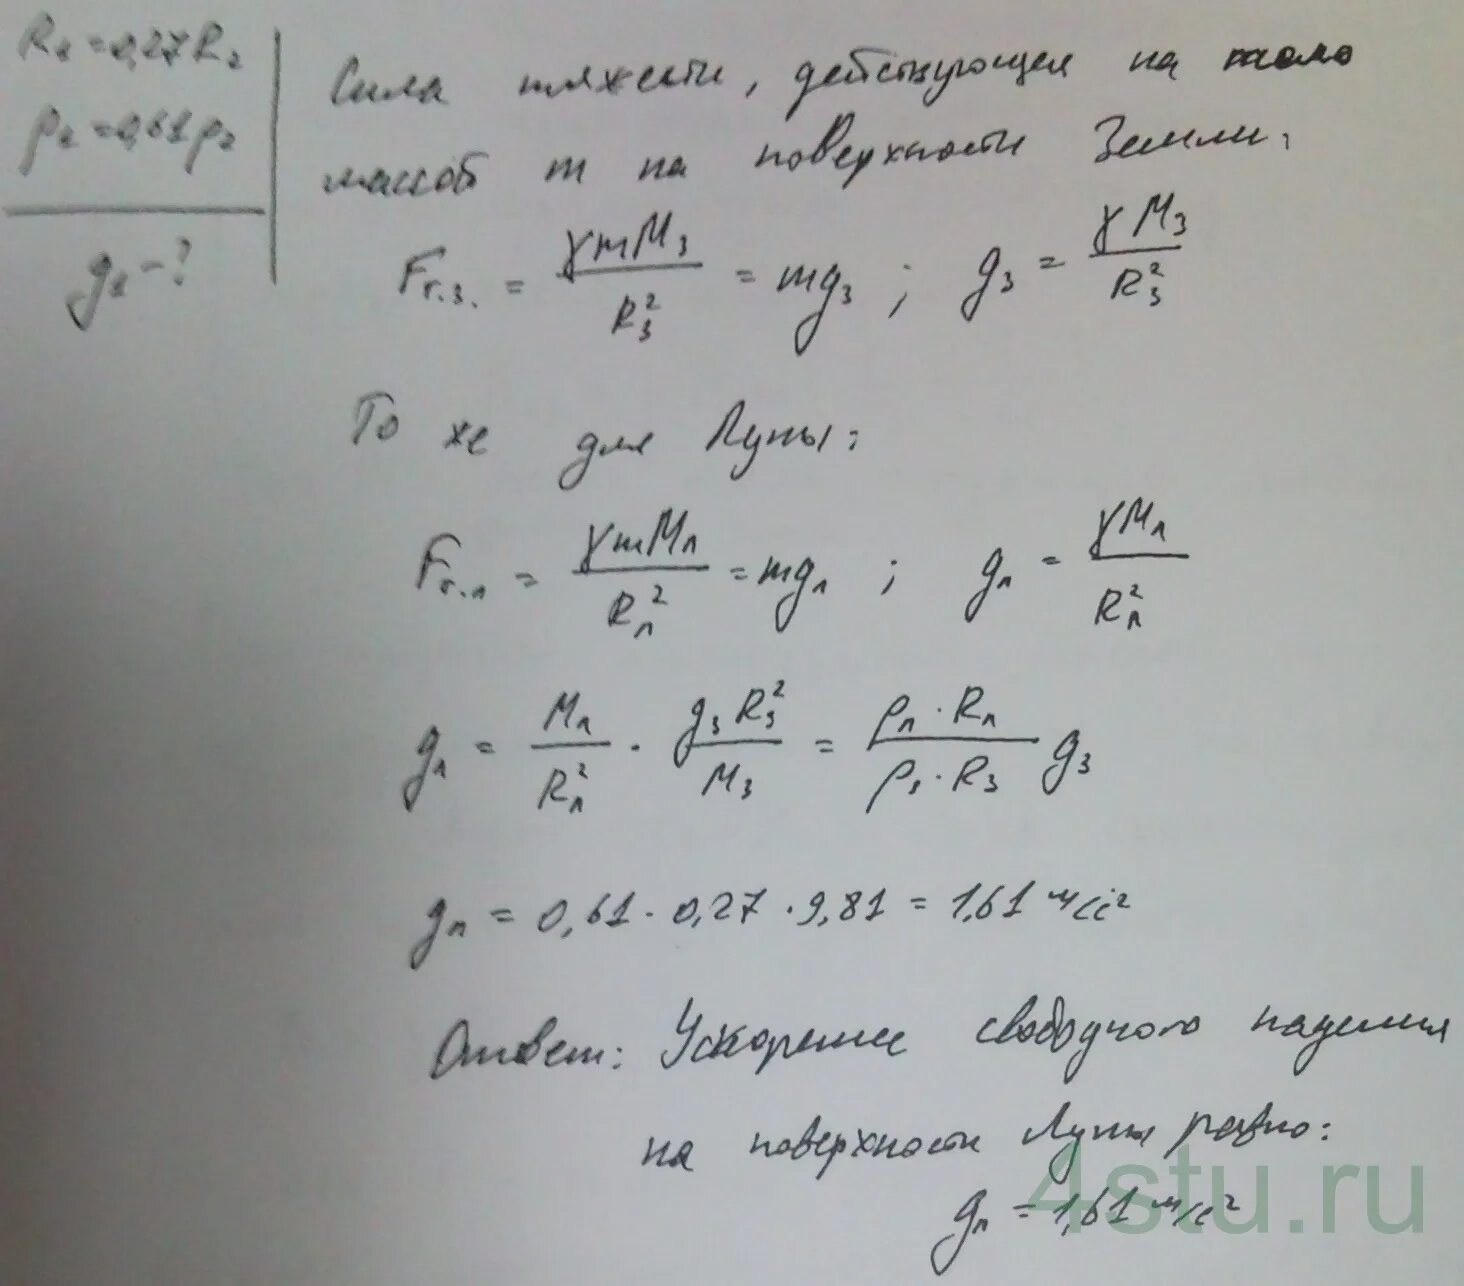 R₁ = 0,27 R₂
ρ₁ = 0,61 ρ₂
g₁ - ?
Сила тяжести, действующая на тело
массой m на поверхности Земли:
Fт.з. = γmMз / Rз² = mgз ; gз = γMз / Rз²
То же для Луны:
Fт.л = γmMл / Rл² = mgл ; gл = γMл / Rл²
gл = Mл / Rл² · gзRз² / Mз = ρл · Rл / ρз · Rз gз
gл = 0,61 · 0,27 · 9,81 = 1,61 м/с²
Ответ: Ускорение свободного падения
на поверхности Луны равно:
gл = 1,61 м/с²
4stu.ru